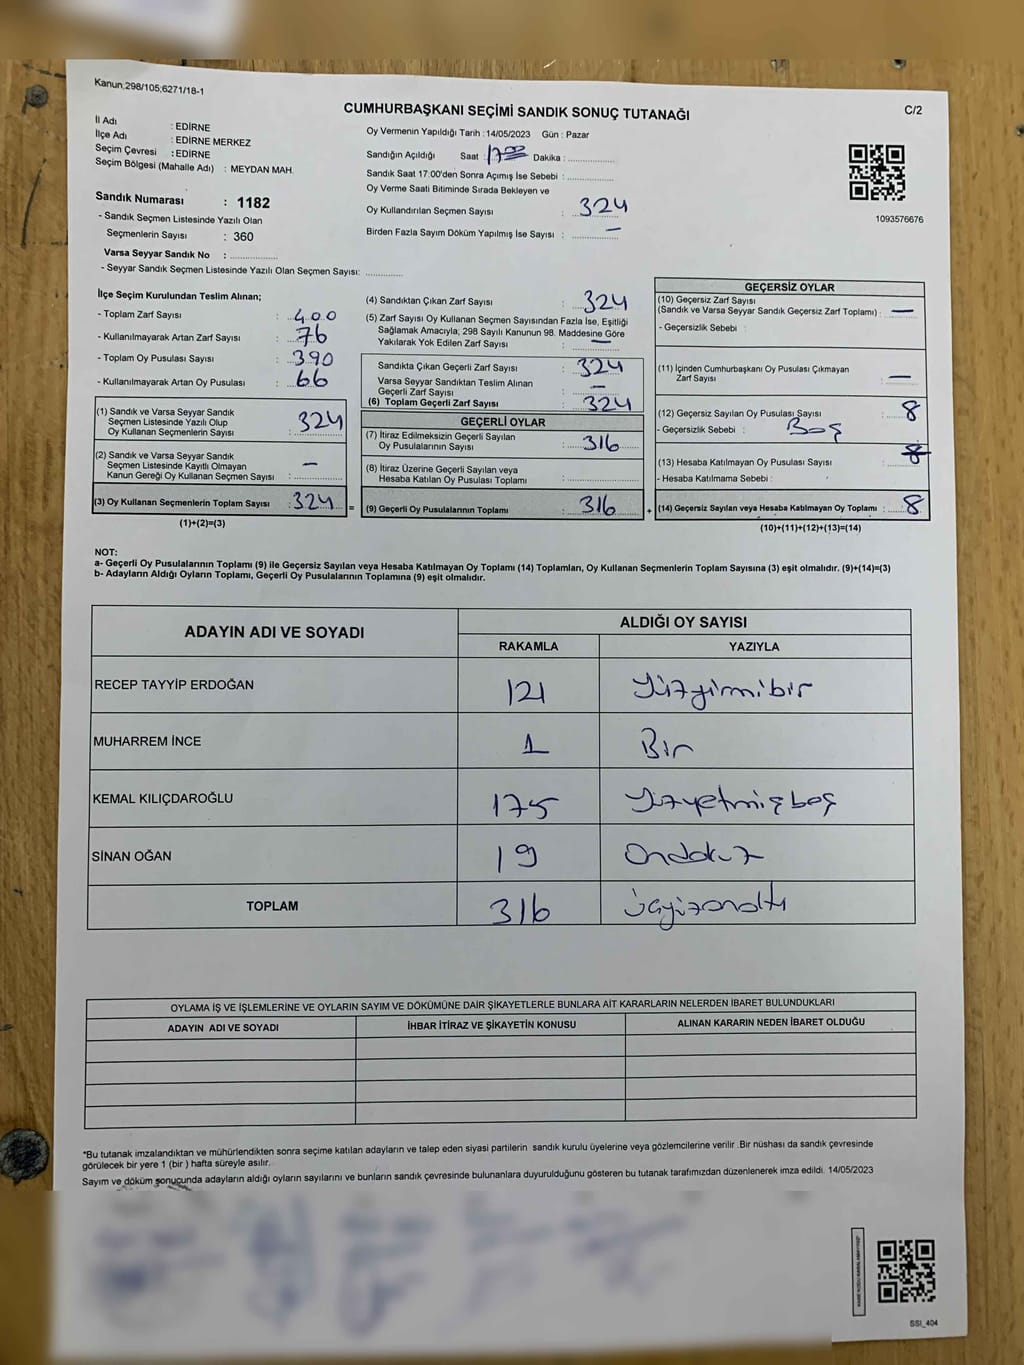 Kanun;298/105;6271/18-1
C/2
CUMHURBAŞKANI SEÇİMİ SANDIK SONUÇ TUTANAĞI
İl Adı : EDİRNE
İlçe Adı : EDİRNE MERKEZ
Seçim Çevresi : EDİRNE
Seçim Bölgesi (Mahalle Adı) : MEYDAN MAH.
Sandık Numarası : 1182
- Sandık Seçmen Listesinde Yazılı Olan
Seçmenlerin Sayısı : 360
Varsa Seyyar Sandık No :
- Seyyar Sandık Seçmen Listesinde Yazılı Olan Seçmen Sayısı:
Oy Vermenin Yapıldığı Tarih : 14/05/2023 Gün : Pazar
Sandığın Açıldığı Saat : 17:00 Dakika :
Sandık Saat 17:00'den Sonra Açımış İse Sebebi :
Oy Verme Saati Bitiminde Sırada Bekleyen ve
Oy Kullandırılan Seçmen Sayısı : 324
Birden Fazla Sayım Döküm Yapılmış İse Sayısı : —
1093576676
İlçe Seçim Kurulundan Teslim Alınan;
- Toplam Zarf Sayısı : 400
- Kullanılmayarak Artan Zarf Sayısı : 76
- Toplam Oy Pusulası Sayısı : 390
- Kullanılmayarak Artan Oy Pusulası : 66
(1) Sandık ve Varsa Seyyar Sandık
Seçmen Listesinde Yazılı Olup
Oy Kullanan Seçmenlerin Sayısı : 324
(2) Sandık ve Varsa Seyyar Sandık
Seçmen Listesinde Kayıtlı Olmayan
Kanun Gereği Oy Kullanan Seçmen Sayısı : —
(3) Oy Kullanan Seçmenlerin Toplam Sayısı : 324 =
(1)+(2)=(3)
(4) Sandıktan Çıkan Zarf Sayısı : 324
(5) Zarf Sayısı Oy Kullanan Seçmen Sayısından Fazla İse, Eşitliği
Sağlamak Amacıyla; 298 Sayılı Kanunun 98. Maddesine Göre
Yakılarak Yok Edilen Zarf Sayısı : —
Sandıkta Çıkan Geçerli Zarf Sayısı : 324
Varsa Seyyar Sandıktan Teslim Alınan
Geçerli Zarf Sayısı : —
(6) Toplam Geçerli Zarf Sayısı : 324
GEÇERLİ OYLAR
(7) İtiraz Edilmeksizin Geçerli Sayılan
Oy Pusulalarının Sayısı : 316
(8) İtiraz Üzerine Geçerli Sayılan veya
Hesaba Katılan Oy Pusulası Toplamı :
(9) Geçerli Oy Pusulalarının Toplamı : 316 +
GEÇERSİZ OYLAR
(10) Geçersiz Zarf Sayısı
(Sandık ve Varsa Seyyar Sandık Geçersiz Zarf Toplamı) : —
- Geçersizlik Sebebi :
(11) İçinden Cumhurbaşkanı Oy Pusulası Çıkmayan
Zarf Sayısı : —
(12) Geçersiz Sayılan Oy Pusulası Sayısı : 8
- Geçersizlik Sebebi : Boş
(13) Hesaba Katılmayan Oy Pusulası Sayısı : 8
- Hesaba Katılmama Sebebi :
(14) Geçersiz Sayılan veya Hesaba Katılmayan Oy Toplamı : 8
(10)+(11)+(12)+(13)=(14)
NOT:
a- Geçerli Oy Pusulalarının Toplamı (9) ile Geçersiz Sayılan veya Hesaba Katılmayan Oy Toplamı (14) Toplamları, Oy Kullanan Seçmenlerin Toplam Sayısına (3) eşit olmalıdır. (9)+(14)=(3)
b- Adayların Aldığı Oyların Toplamı, Geçerli Oy Pusulalarının Toplamına (9) eşit olmalıdır.
ADAYIN ADI VE SOYADI
ALDIĞI OY SAYISI
RAKAMLA YAZIYLA
RECEP TAYYİP ERDOĞAN 121 Yüzyirmibir
MUHARREM İNCE 1 Bir
KEMAL KILIÇDAROĞLU 175 Yüzyetmişbeş
SİNAN OĞAN 19 Ondokuz
TOPLAM 316 üçyüzonaltı
OYLAMA İŞ VE İŞLEMLERİNE VE OYLARIN SAYIM VE DÖKÜMÜNE DAİR ŞİKAYETLERLE BUNLARA AİT KARARLARIN NELERDEN İBARET BULUNDUKLARI
ADAYIN ADI VE SOYADI İHBAR İTİRAZ VE ŞİKAYETİN KONUSU ALINAN KARARIN NEDEN İBARET OLDUĞU
*Bu tutanak imzalandıktan ve mühürlendikten sonra seçime katılan adayların ve talep eden siyasi partilerin sandık kurulu üyelerine veya gözlemcilerine verilir .Bir nüshası da sandık çevresinde
görülecek bir yere 1 (bir ) hafta süreyle asılır.
Sayım ve döküm sonucunda adayların aldığı oyların sayılarını ve bunların sandık çevresinde bulunanlara duyurulduğunu gösteren bu tutanak tarafımızdan düzenlenerek imza edildi. 14/05/2023
SSI_404